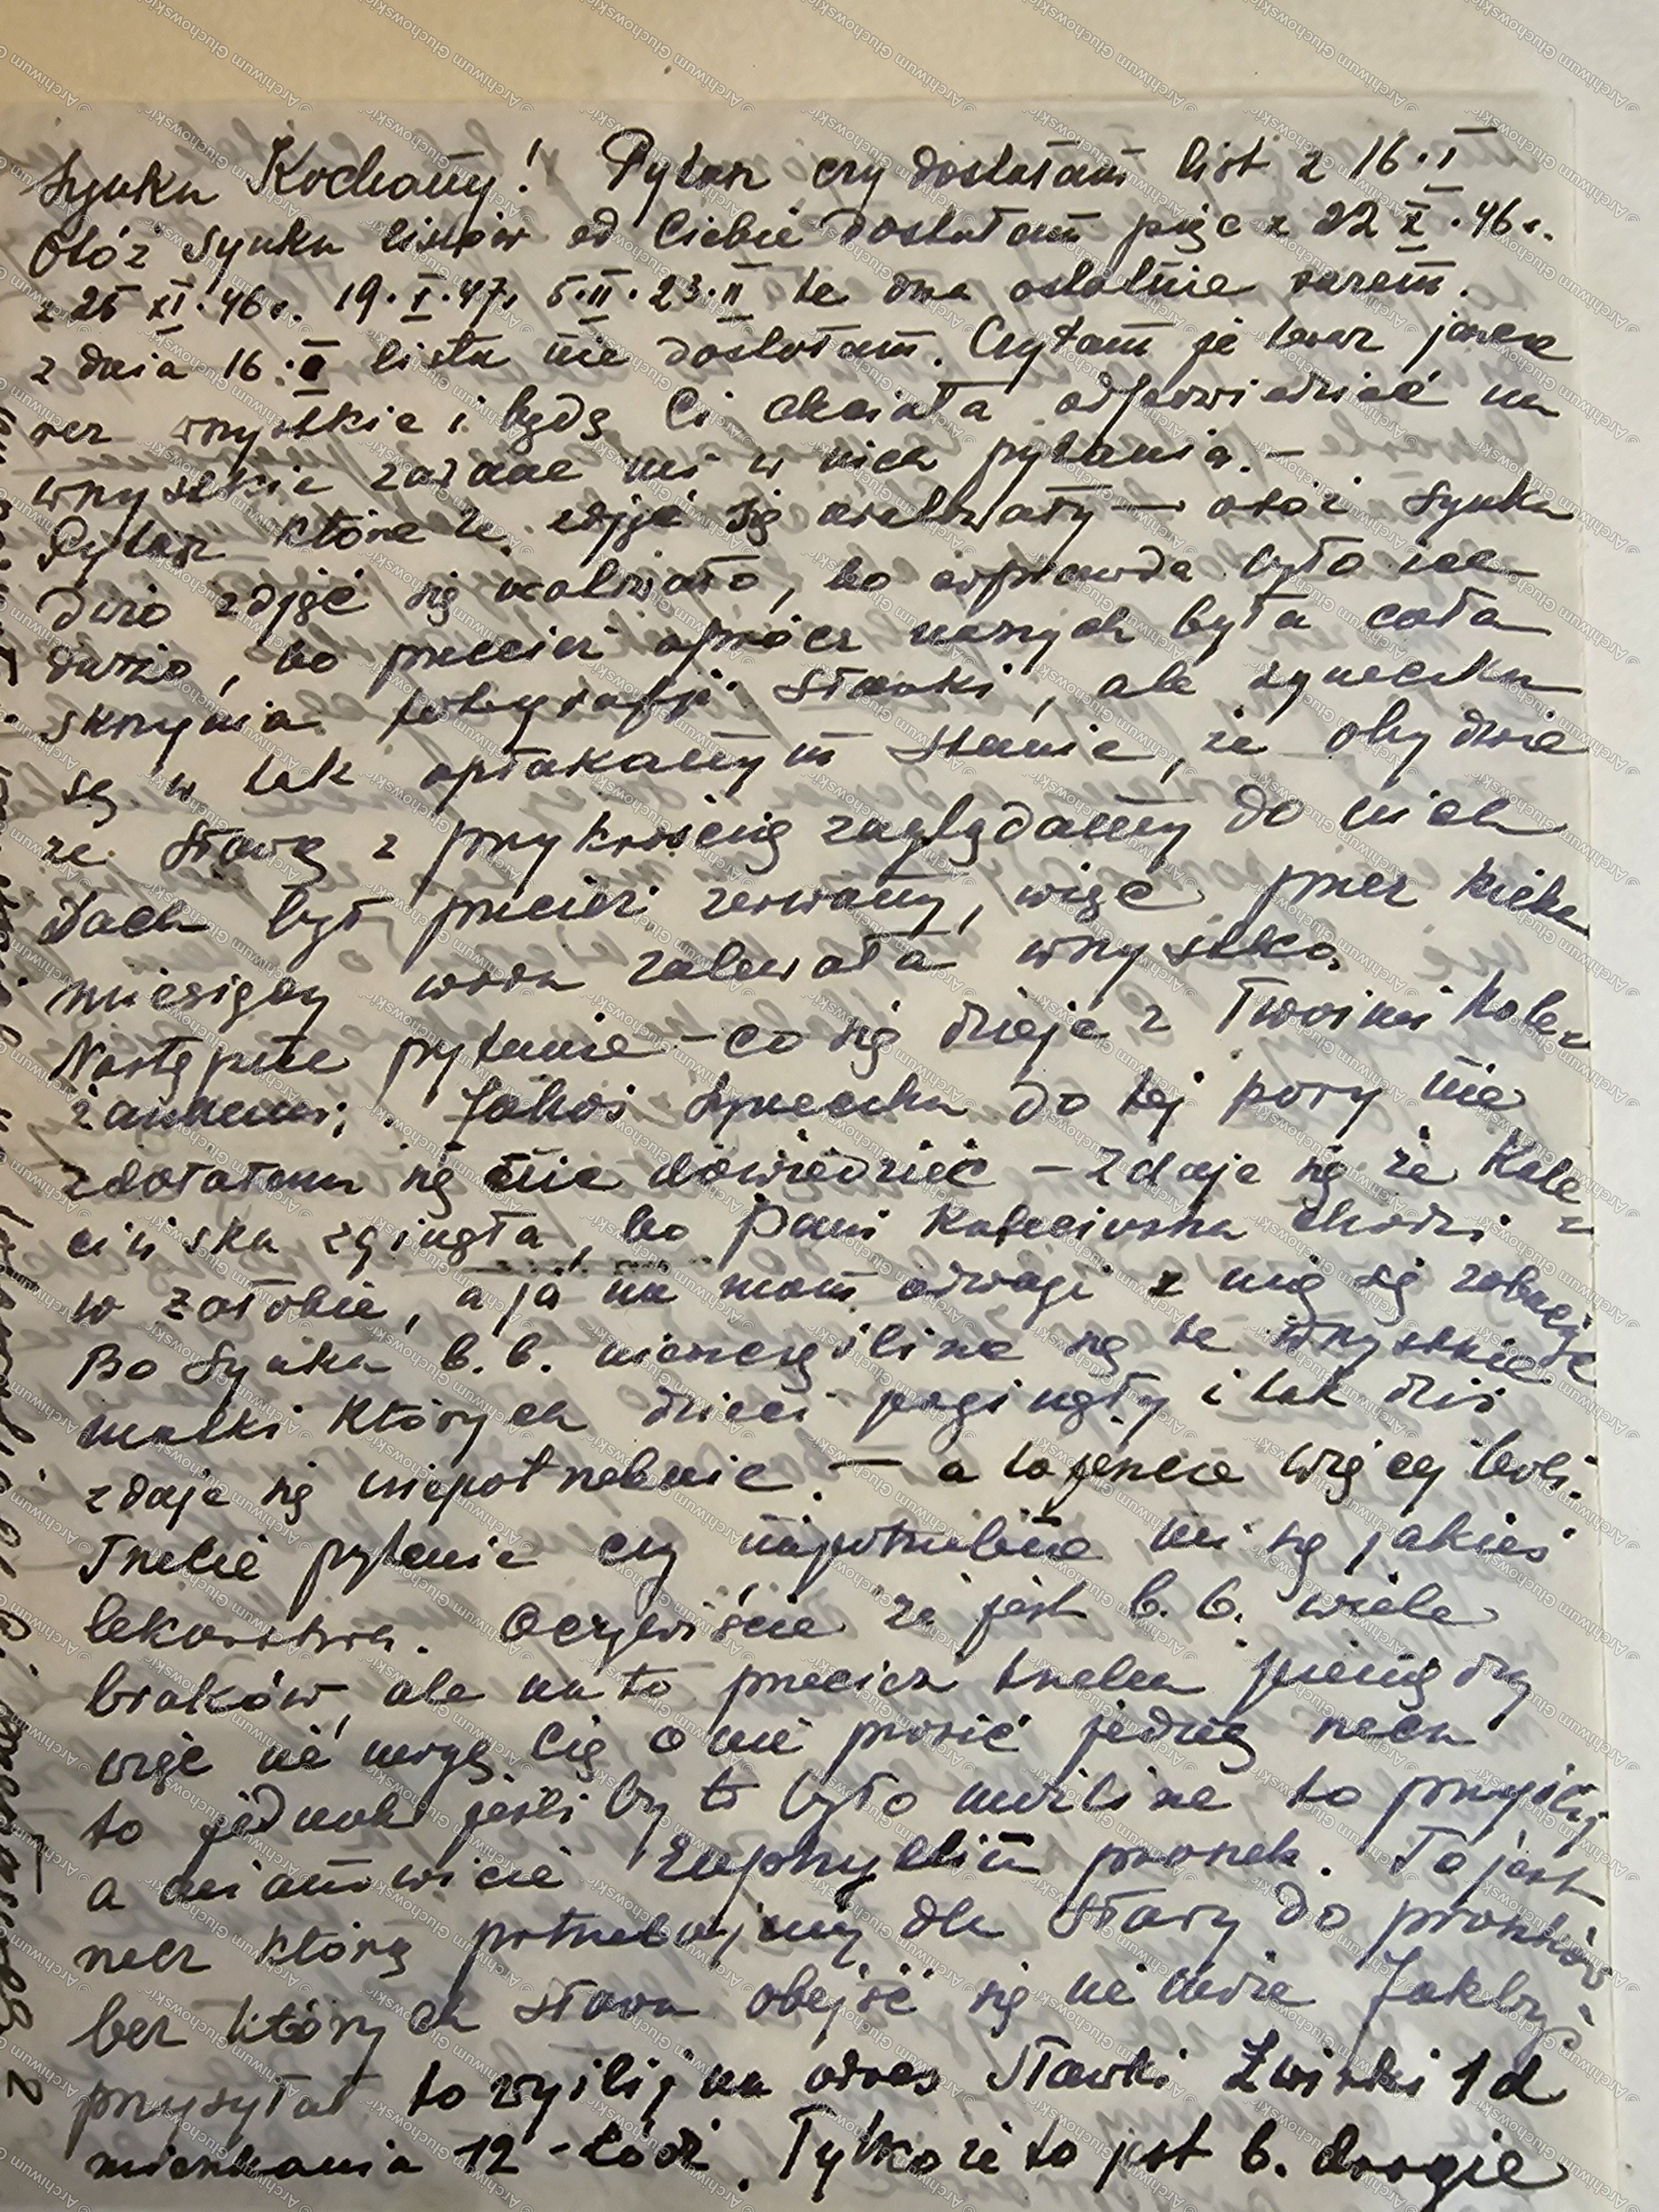 Synku Kochany! Pytasz czy dostałam list z 16.I
Otóż Synku listów od Ciebie dostałam pięć z 22 X.46r.
z 25 XI.46r. 19.I.47, 5.II. 23.II te dwa ostatnie razem.
z dnia 16. listu nie dostałam. Czytam je teraz jeszcze
raz wszystkie i będę Ci chciała odpowiedzieć na
wszystkie zadane mi w nich pytania.-
Pytasz które ze zdjęć się uratowały — otóż Synku
dużo zdjęć się uratowało, bo wprawdzie było ich
dużo, bo przecież oprócz naszych była cała
skrzynia fotografji Sławki, ale syneczku
są w tak opłakanym stanie, że obydwie
ze Sławą z przykrością zaglądamy do nich
Dach był przecież zerwany, więc przez kilka
miesięcy woda zalewała wszystko.
Następne pytanie - co się dzieje z Twoimi kole-
żankami; Jakoś Syneczku do tej pory nie
zdołałam się nic dowiedzieć - zdaje się że Kale-
cińska zginęła, bo Pani Kalecińska chodzi -
w żałobie, a ja nie mam odwagi z nią się zobaczyć
Bo Synku b.b. nieszczęśliwe są te wszystkie
matki których dzieci poginęły i tak dziś
zdaje się niepotrzebnie. — a to jeszcze więcej boli.
Trzecie pytanie czy niepotrzebne mi są jakieś
lekarstwa. Oczywiście że jest b. b. wiele
braków, ale na to przecież trzeba pieniędzy
więc nie mogę Cię o nie prosić jedną rzecz
to jednak jeśliby to było możliwe to przyślij
a mianowicie Euphyllin proszek. To jest
rzecz którą potrzebujemy dla Sławy do proszków
bez których Sława obejść się nie może Jakbyś
przysyłał to wyślij na adres Sławki Żwirki 1d
mieszkania 12 - Łódź. Tylko że to jest b. drogie